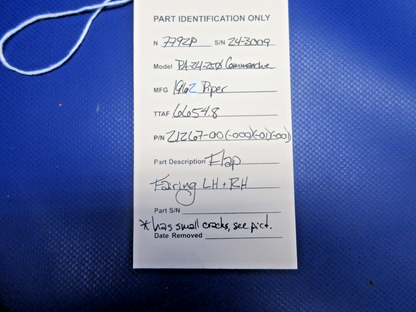 PART IDENTIFICATION ONLY
N 7792P S/N 24-3009
Model PA-24-250 Commanche
MFG 1962 Piper
TTAF 6654.8
P/N 21267-00 (-000)(-01)(-00)
Part Description Flap
Fairing LH + RH
Part S/N
* has small cracks, see pict.
Date Removed